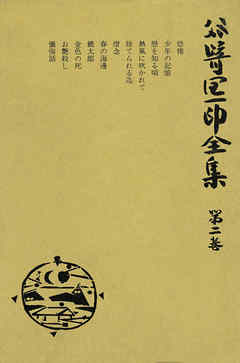 谷崎潤一郎全集
第二卷
恐怖
少年の記憶
戀を知る頃
熱風に吹かれて
捨てられる迄
憎念
春の海邊
饒太郎
金色の死
お艷殺し
懺悔話